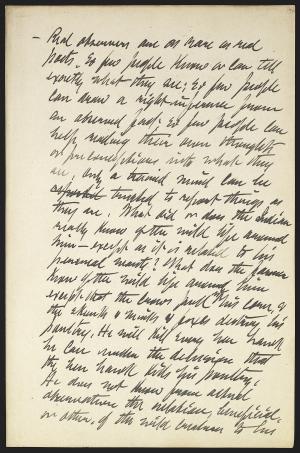 — Real observers are as rare as real
poets. So few people know or can tell
exactly what they see; So few people
can draw a right inference from
an observed fact; So few people can
help reading their own thoughts
or preconceptions into what they
see; Only a trained mind can be
trusted to report things as
they are. What did or does the Indian
really know of the wild life around
him — except as it is related to his
personal wants? What does the farmer
know of the wild life around him
except that the crows pull his corn, &
the skunks & minks & foxes destroy his
poultry. He will kill every hen hawk
he can under the delusion that
the hen hawk kills his poultry.
He does not know from actual
observation the relation, beneficial
or other, of the wild creatures to his